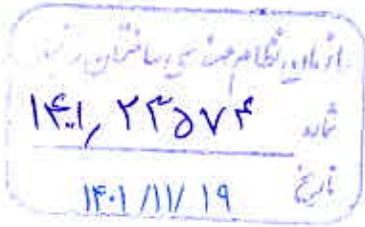 سازمان نظام مهندسی ساختمان
شماره ۱۴۰۱, ۲۳۵۷۴
تاریخ ۱۴۰۱/۱۱/۱۹